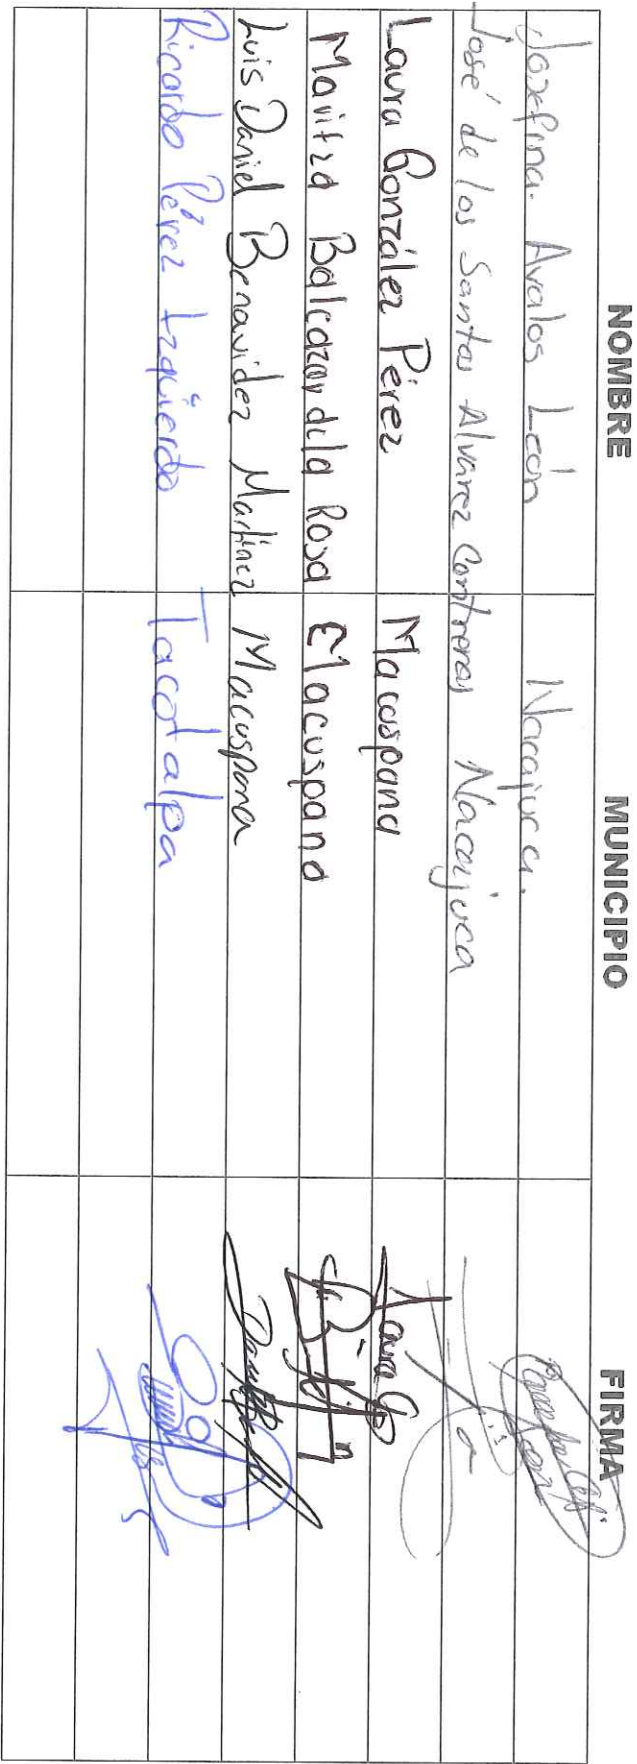 NOMBRE MUNICIPIO FIRMA
Josefina Avalos León Nacajuca.
José de los Santos Alvarez Contreras Nacajuca
Laura González Pérez Macuspana Laura G
Maritza Balcazar dela Rosa Macuspana
Luis Daniel Benavidez Martínez Macuspana
Ricardo Pérez Izquierdo Tacotalpa